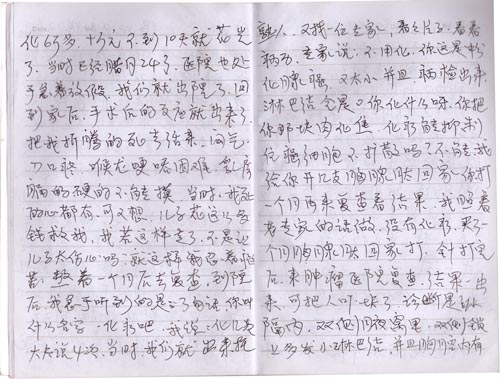 化63多,十多元,不到10天就花光
了,当时已经腊月24了,医院也处
于是着放假,我们就出院了。回
到家后,手术后的反应就出来了
把我折腾的死去活来,闷气,
刀口疼,喉龙哽咽困难,
的硬的不能摸,当时,我死
的心都有,可又想,儿子花这么多
钱救我,我若这样走了,不是让
儿子太伤心吗?就这样我忍着
着,一个月后去复查,到院
后,我最于听到的是三个白话,你叫
什么名字,化疗吧,我说:化几次
大夫说4次,当时,我们就出来找
熟人,又找一位专家,看了片子,看着
病历,专家说:不用化,你这是粉
化腺癌,又太小,并且病检出来
淋巴结全是0,你化什么呀,你把
你那块肉化焦,化疗能抑制
住癌细胞不扩散吗?不能,我
给你开几支胸腺肽回家,你打
一个月再来复查看结果,我照着
专家的话做,没有化疗,买了
一个月胸腺肽回家打,针打完
后,来肿瘤医院复查,结果一出
来,可把人吓坏了,诊断是:纵
隔内,双侧腋窝里,双侧锁
上多发小淋巴结,并且胸膜内有